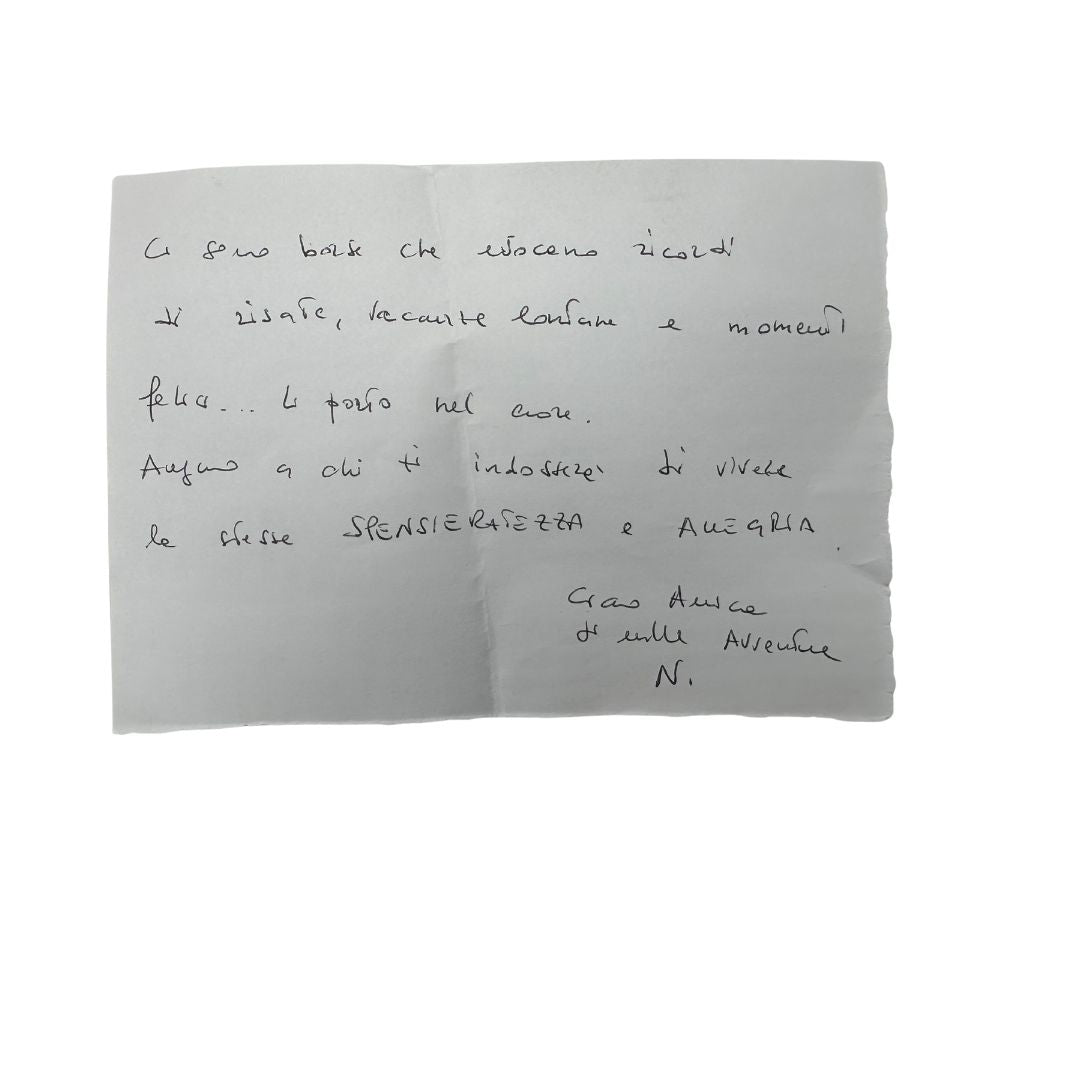 Ci sono borse che evocano ricordi
di risate, vacanze lontane e momenti
felici... Li porto nel cuore.
Auguro a chi ti indosserà di vivere
la stessa SPENSIERATEZZA e ALLEGRIA.
Ciao Amica
di mille Avventure
N.